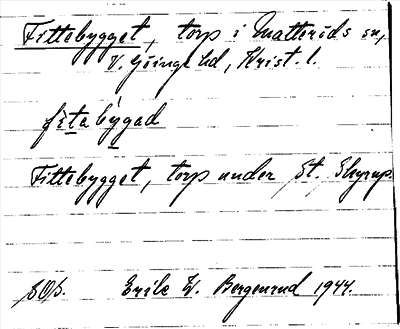 Fittebygget, torp i Matteröds sn,
V. Göinge hd, Krist. l.
fìtabýgad
Fittebygget, torp under St. Skyrup
SOS. Erik W. Bergenrud 1944.